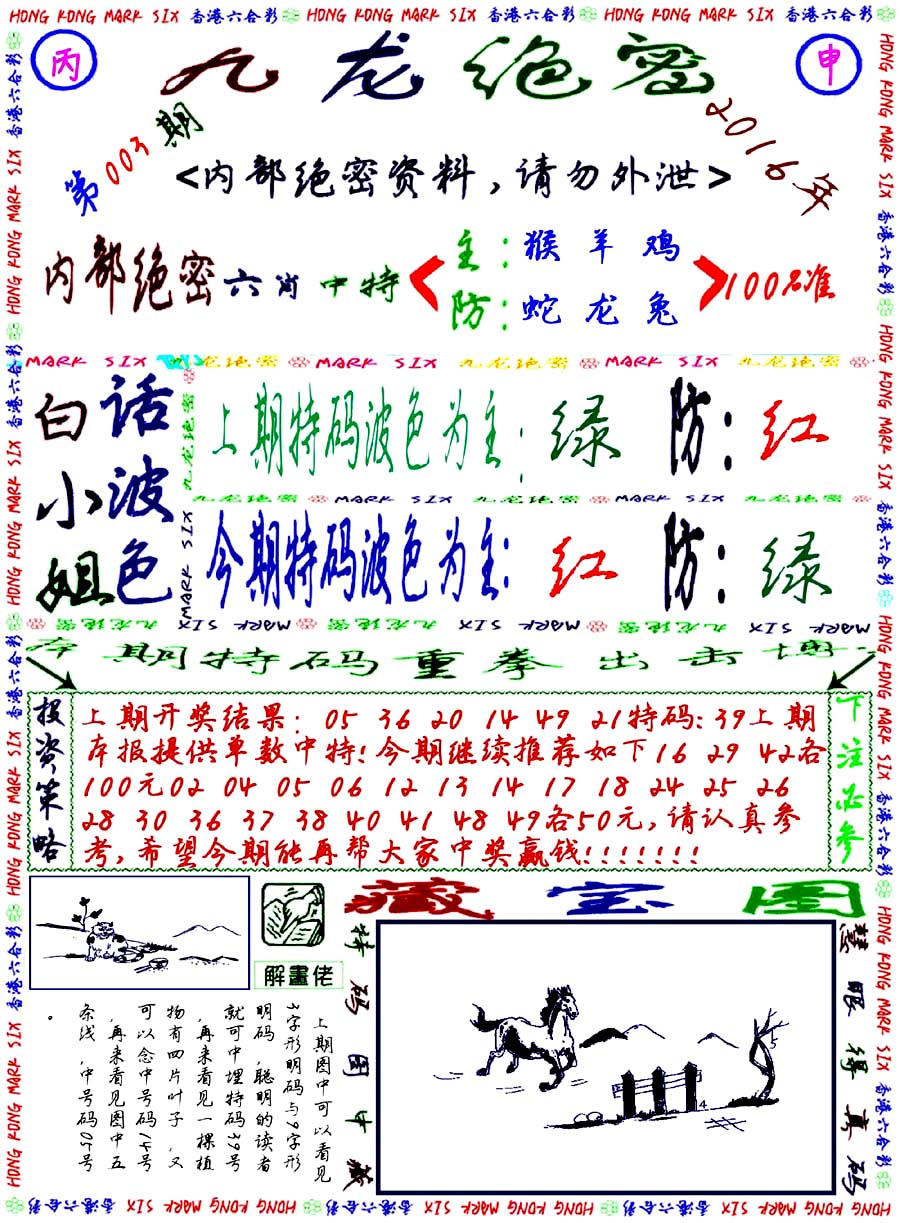 HONG KONG MARK SIX 香港六合彩 HONG KONG MARK SIX 香港六合彩 HONG KONG MARK SIX 香港六合彩
丙
九龙绝密
申
第003期
2016年
<内部绝密资料,请勿外泄>
内部绝密六肖中特
主:猴羊鸡
防:蛇龙兔
100%准
MARK SIX 九龙绝密 MARK SIX 九龙绝密 MARK SIX 九龙绝密
白话
小波
姐色
上期特码波色为主:绿 防:红
九龙绝密 MARK SIX 九龙绝密 MARK SIX 九龙绝密
今期特码波色为主:红 防:绿
本期特码重拳出击博
投资策略
上期开奖结果:05 36 20 14 49 21特码:39上期
本报提供单数中特!今期继续推荐如下16 29 42各
100元02 04 05 06 12 13 14 17 18 24 25 26
28 30 36 37 38 40 41 48 49各50元,请认真参
考,希望今期能再帮大家中奖赢钱!!!!!!!
下注必参
藏宝图
解畫佬
特码图中藏
慧眼得真码
上期图中可以看见
3字形明码与9字形
明码,聪明的读者
就可中埋特码39号
,再来看见一棵植
物有四片叶子,又
可以念中号码14号
,再来看见图中五
条线,中号码05号
。